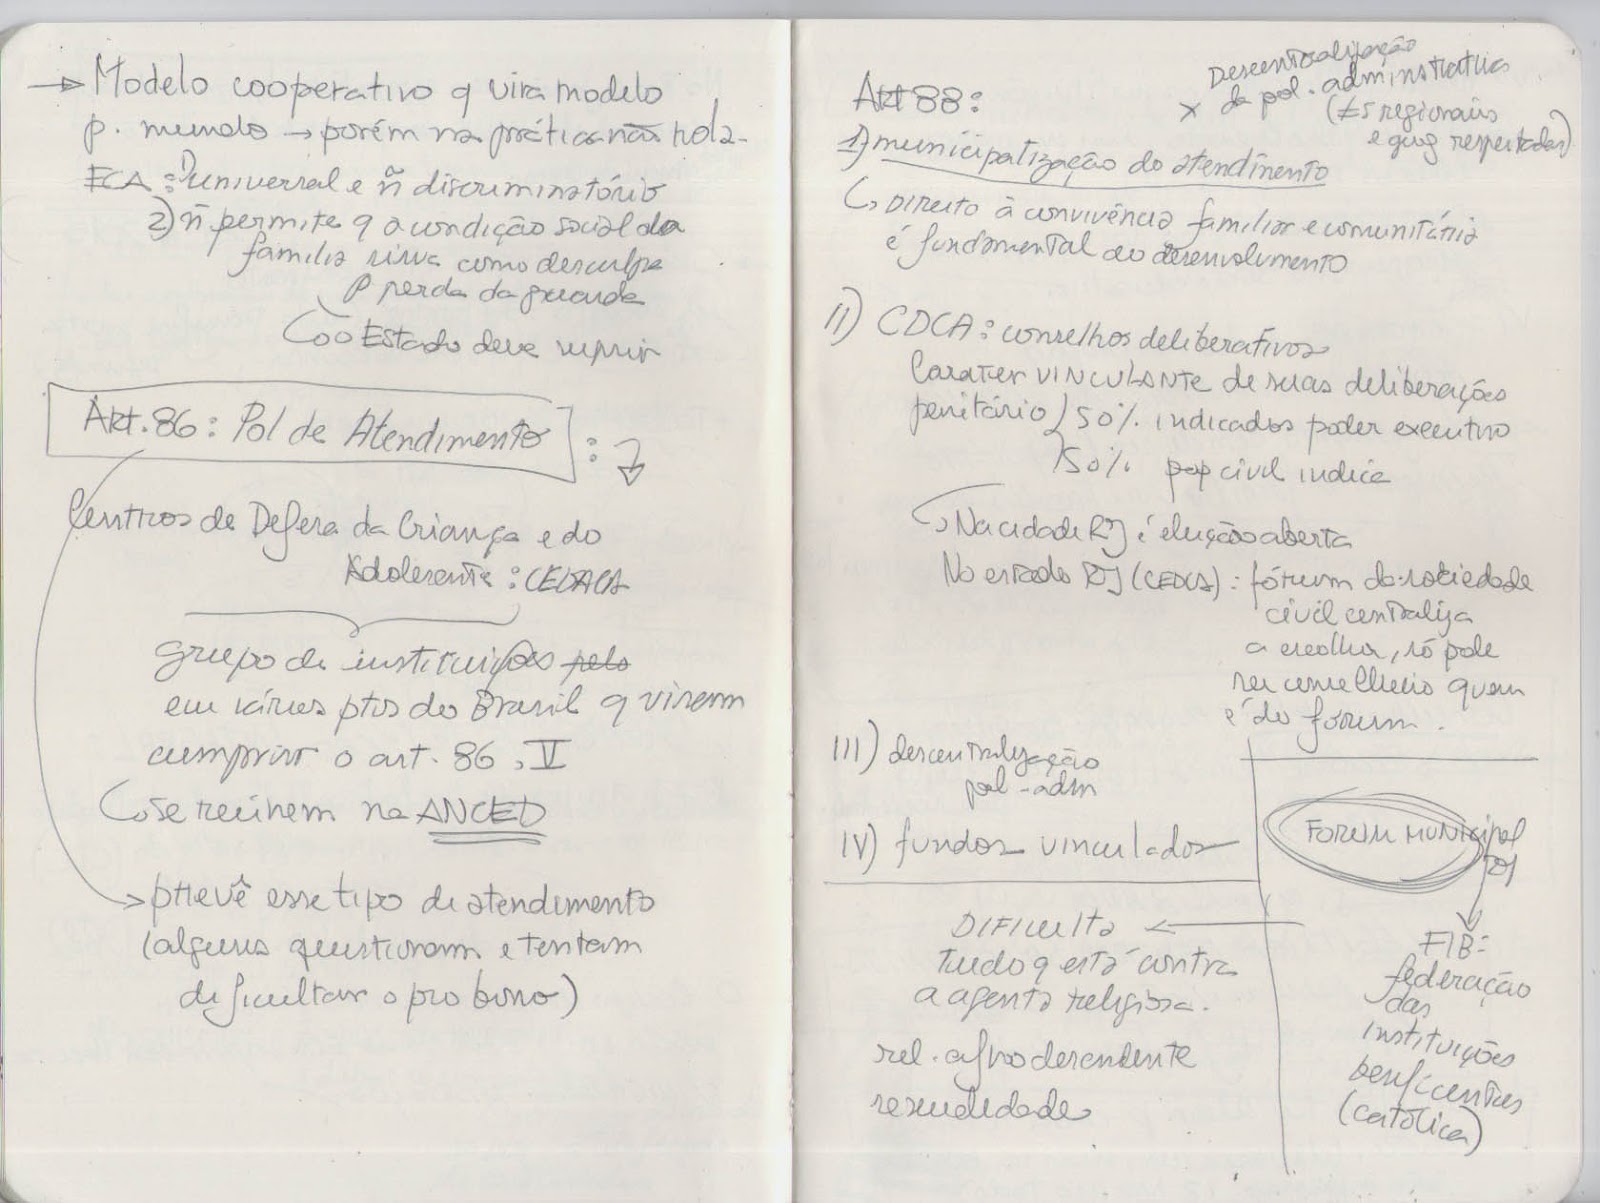 → Modelo cooperativo q vira modelo
p. mundo → porém na prática não rola-
ECA: 1) universal e ñ discriminatório
2) ñ permite q a condição social da
família sirva como desculpa
p perda da guarda
↳ o Estado deve suprir
Art. 86: Pol de Atendimento :
Centros de Defesa da Criança e do
Adolescente: CEDACA
grupo de instituições pelo
em vários pts do Brasil q visam
cumprir o art. 86, V
↳ se reúnem na ANCED
→ prevê esse tipo de atendimento
(alguns questionam e tentam
dificultar o pro bono)
Art 88:
x Descentralização
da pol. administrativa
(≠s regionais
e q respeitadas)
1) municipalização do atendimento
↳ Direito à convivência familiar e comunitária
é fundamental ao desenvolvimento
II) CDCA: conselhos deliberativos
Carater VINCULANTE de suas deliberações
paritário / 50% indicados poder executivo
50% pop civil indica
↳ Na cidade RJ é eleição aberta
No estado RJ (CEDCA): fórum da sociedade
civil centraliza
a escolha, só pode
ser conselheiro quem
é do fórum.
III) descentralização
pol-adm
IV) fundos vinculados
FORUM MUNICIPAL
RJ
FIB:
federação
das
instituições
beneficentes
(católica)
DIFICULTA ←
tudo q está contra
a agenta religiosa.
rel. afrodescendente
sexualidade